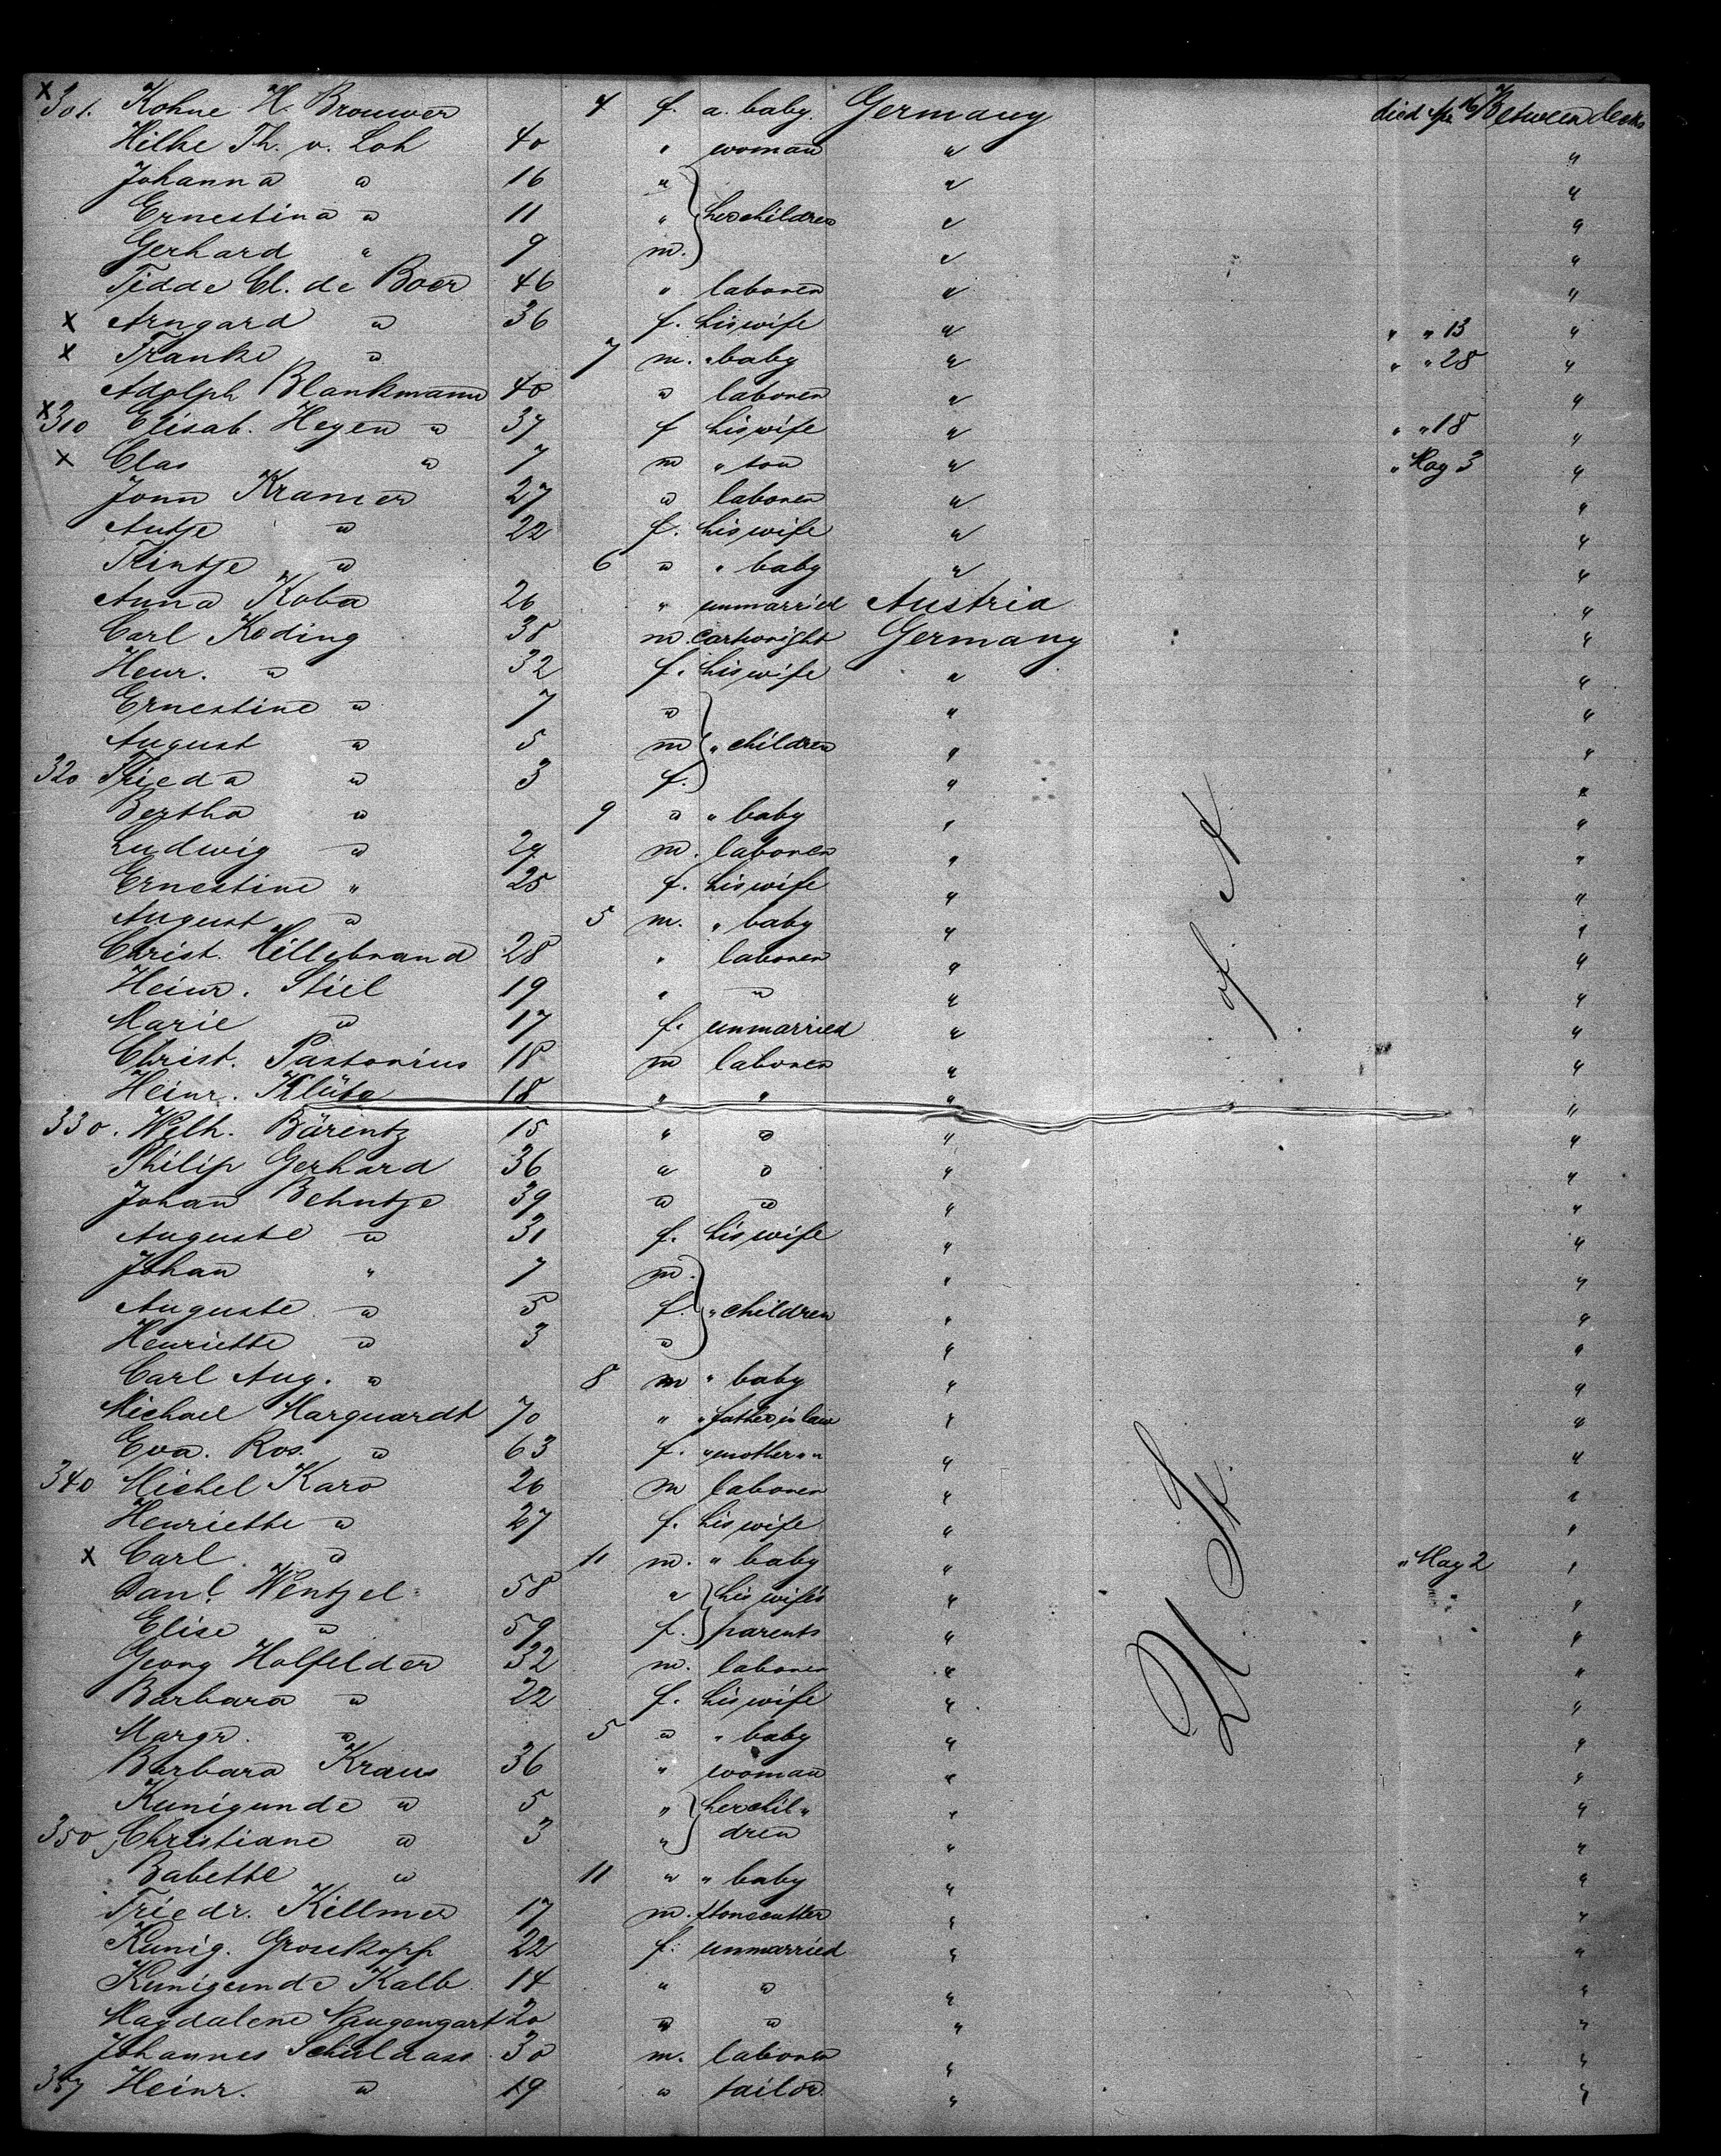 x 301. Kohne H. Brouwer 4 f. a. baby. Germany died Apr 16 Between decks
Hilke Th. v. Loh 40 " woman " "
Johanna " 16 " " "
Ernestina " 11 " her children " "
Gerhard " 9 m. " "
Tidde Cl. de Boer 46 " laborer " "
x Arngard " 36 f. his wife " " " 13 "
x Franke " 7 m. " baby " " " 28 "
Adolph Blankmann 40 " laborer " "
x 310 Elisab. Heyen " 37 f his wife " " " 18 "
x Clas " 7 m " son " " May 3 "
Jann Kramer 27 " laborer " "
Antje " 22 f. his wife " "
Trintje " 6 " " baby " "
Anna Koba 26 " unmarried Austria "
Carl Koding 38 m. cartwright Germany "
Henr. " 32 f. his wife " "
Ernestine " 7 " " "
August " 5 m " children " "
320 Frieda " 3 f. " "
Bertha " 9 " " baby " "
Ludwig " 29 m. laborer " "
Ernestine " 25 f. his wife " "
August " 5 m. " baby " "
Christ. Hillebrand 28 " laborer " "
Heinr. Stiel 19 " " " "
Marie " 17 f. unmarried " "
Christ. Pastorius 18 m laborer " "
Heinr. Klüte 18 " " " "
330. Wilh. Bärentz 15 " " " "
Philip Gerhard 36 " " " "
Johan Behntje 39 " " " "
Auguste " 31 f. his wife " "
Johan " 7 m. " "
Auguste " 5 f. " children " "
Henriette " 3 " " "
Carl Aug. " 8 m " baby " "
Michael Marquardt 70 " " father in law " "
Eva. Ros. " 63 f. " mother " " " "
340 Michel Karo 26 m laborer " "
Henriette " 27 f. his wife " "
x Carl " 11 m. " baby " " May 2 "
Danl. Wentzel 58 " his wife's " "
Elise " 59 f. parents " "
Georg Holfelder 32 m. laborer " "
Barbara " 22 f. his wife " "
Margr. " 5 " " baby " "
Barbara Kraus 36 " woman " "
Kunigunde " 5 " her chil- " "
350 Christiane " 3 " dren " "
Babette " 11 " " baby " "
Friedr. Killmer 17 m. stonecutter " "
Kunig. Grosskopf 22 f. unmarried " "
Kunigunde Kalb 14 " " " "
Magdalene Naugengart 20 " " " "
Johannes Schuldass 30 m. laborer " "
357 Heinr. " 19 " tailor " "
U. St. of A